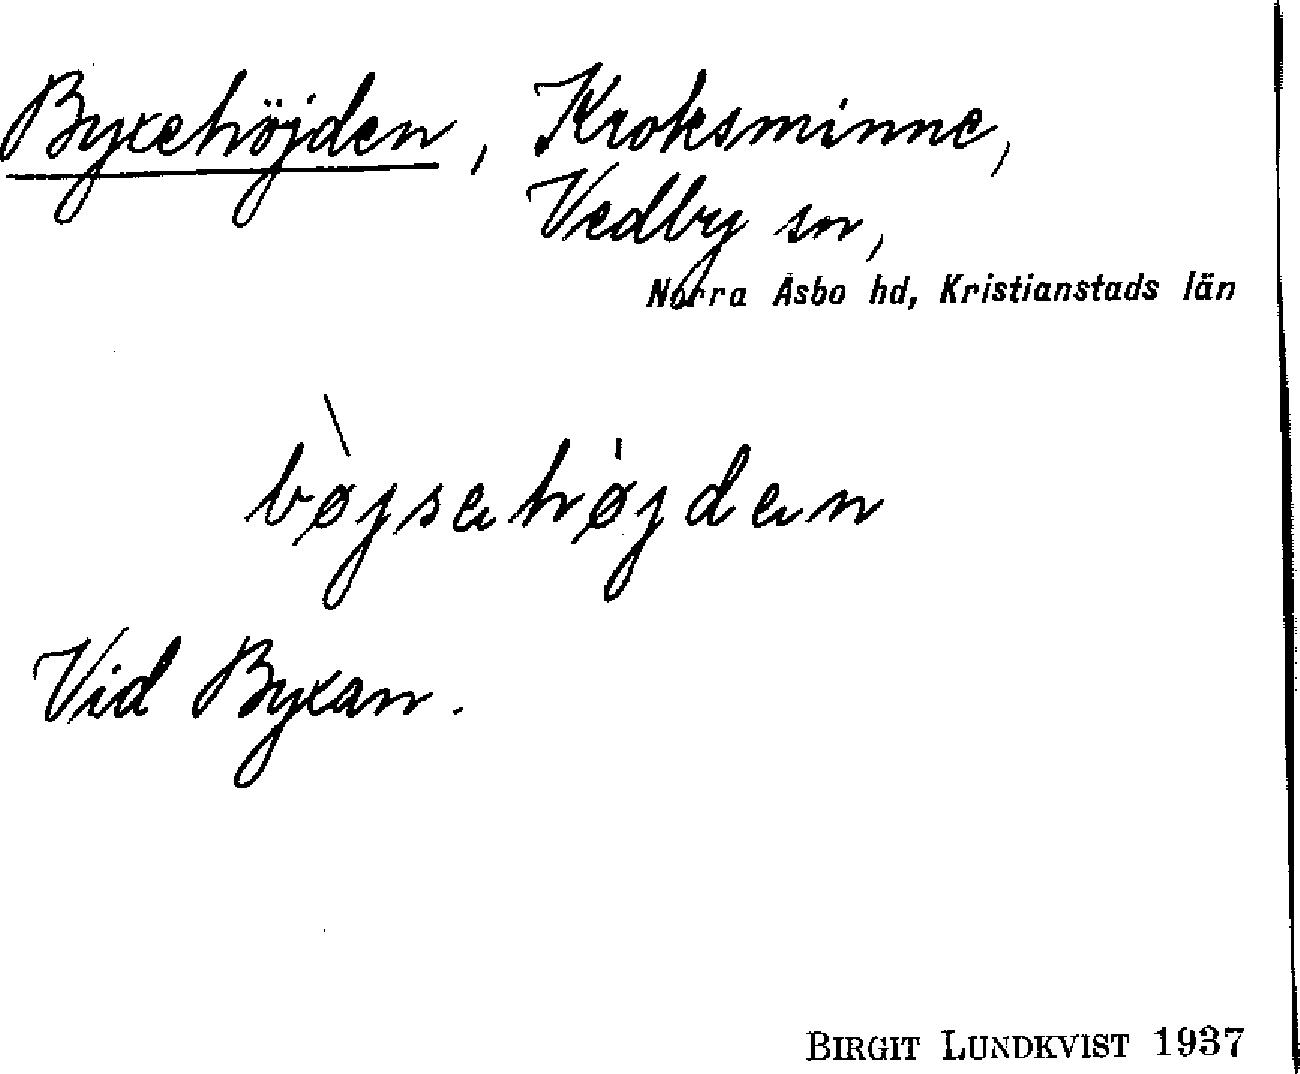 Byxehöjden, Kroksminne,
Vedby sn,
Norra Åsbo hd, Kristianstads län
bø̀jsehø̍jden
Vid Byxan.
BIRGIT LUNDKVIST 1937